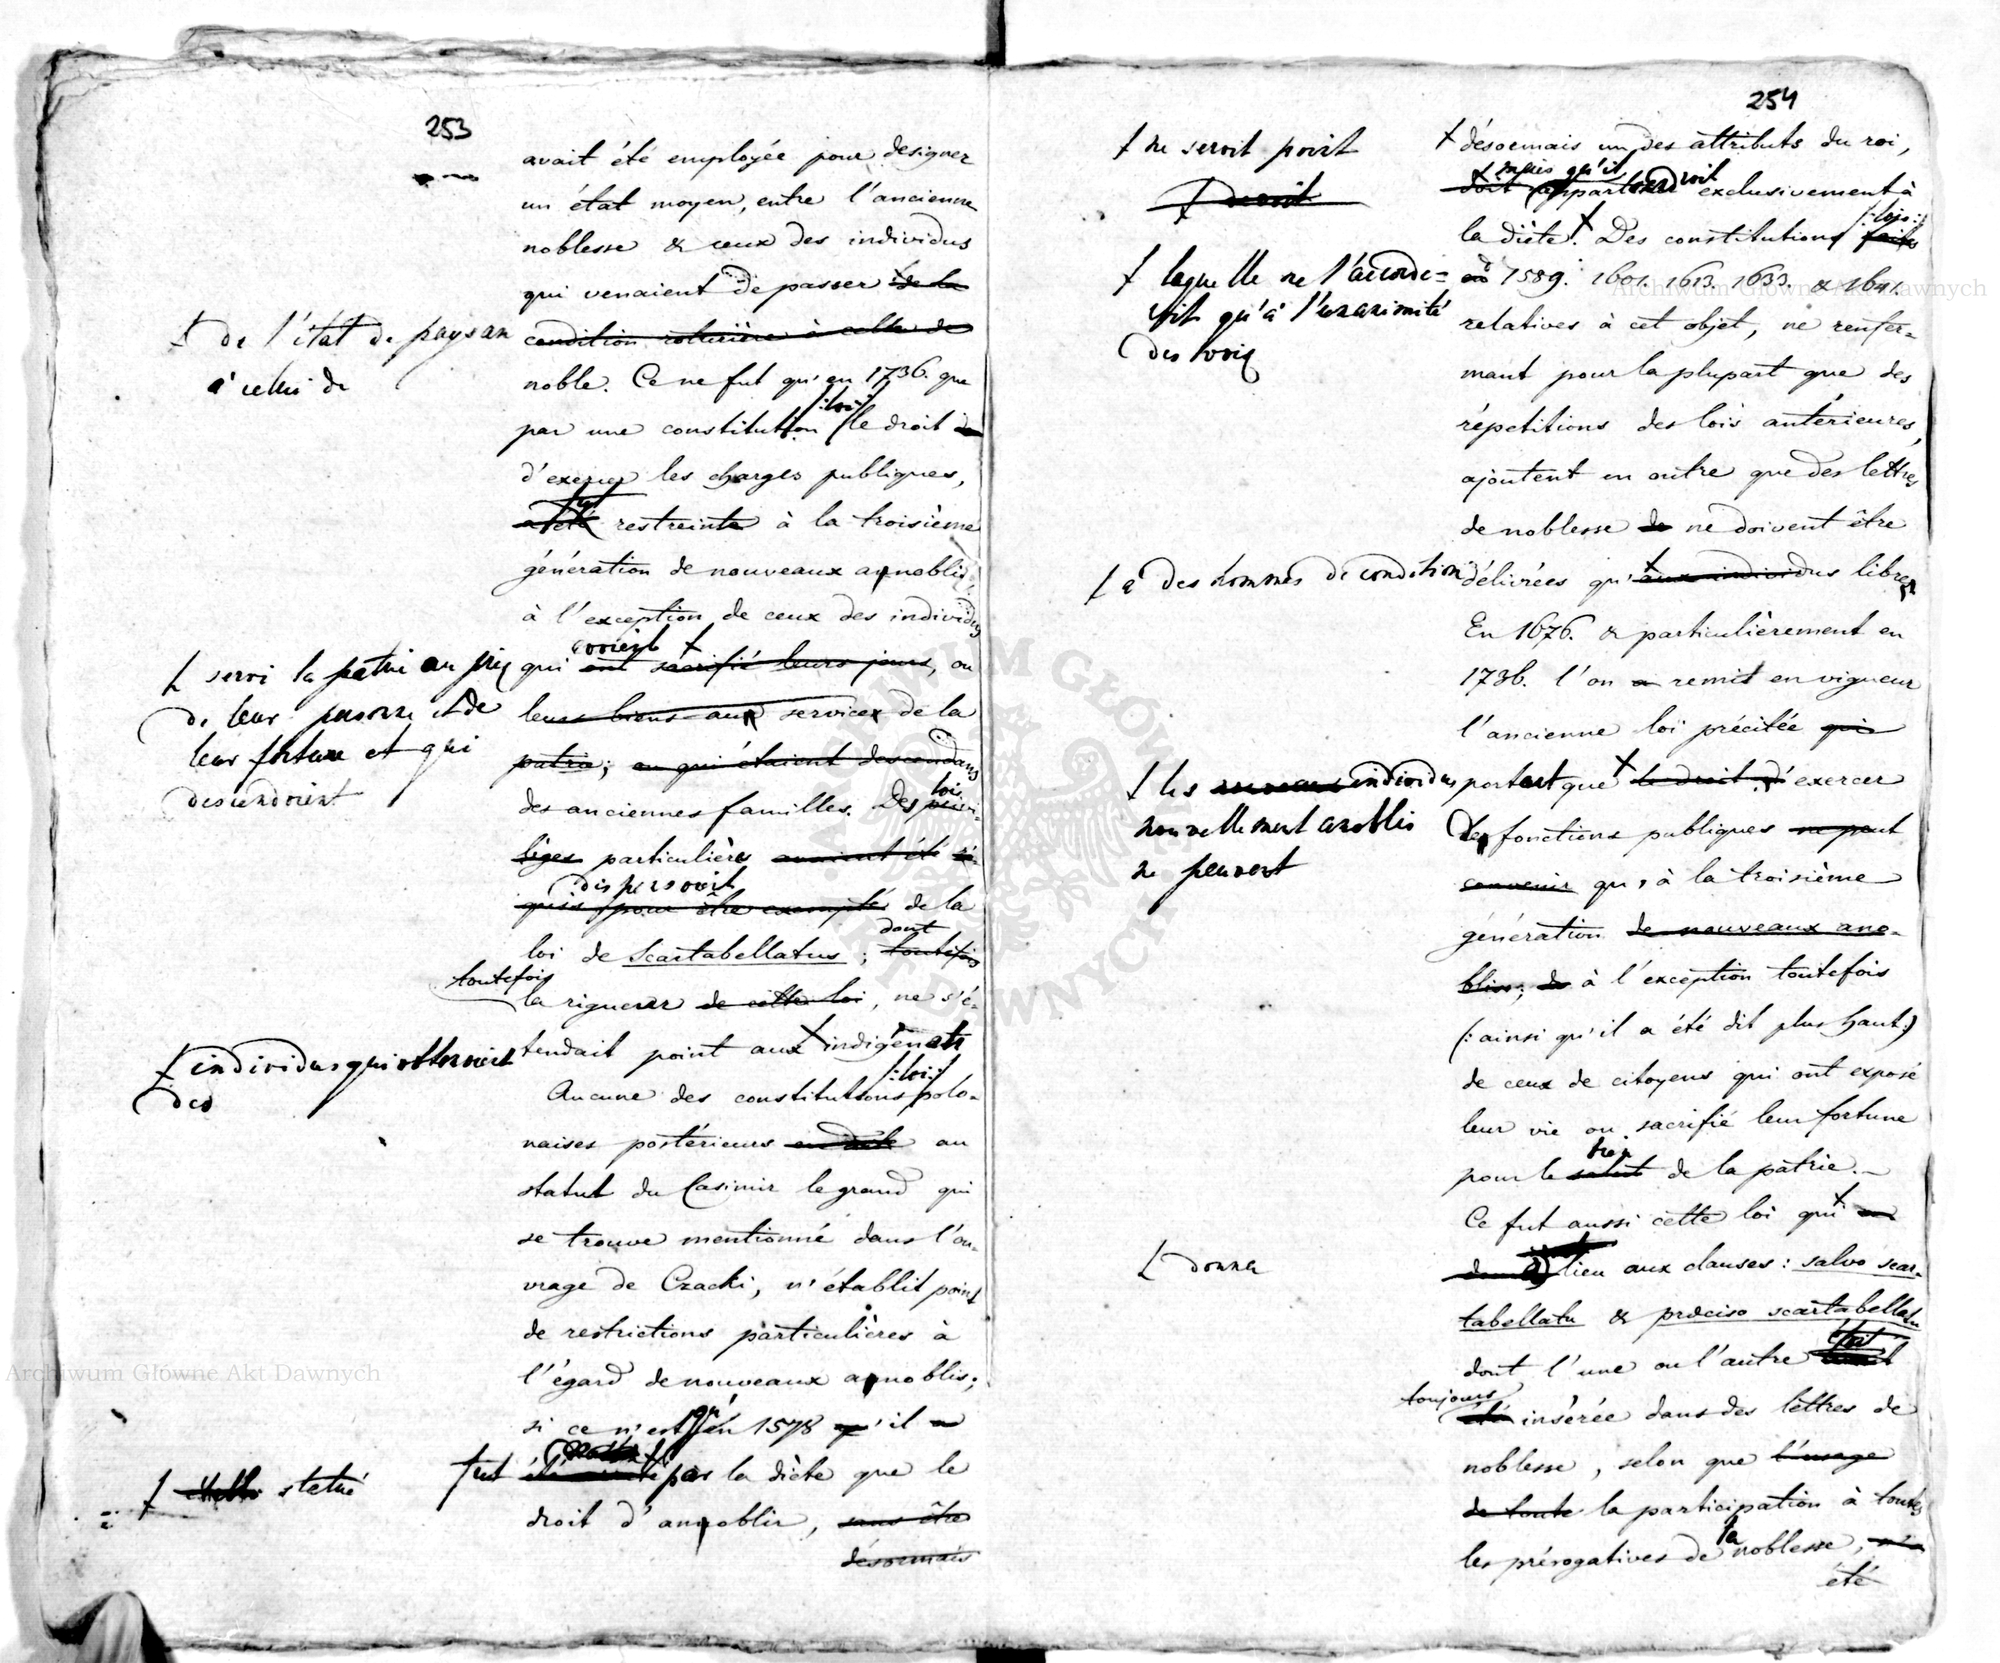 253
avait été employée pour designer
un état moyen, entre l'ancienne
noblesse & ceux des individus
qui venaient de passer de la
condition roturière à celle de
+ de l'état de paysan
à celui de
noble. Ce ne fut qu'en 1736. que
par une constitution /:loi:/ le droit de
d'exercer les charges publiques,
fut
a été restreinte à la troisième
génération de nouveaux annoblis
à l'exception de ceux des individus
avoient +
qui ont sacrifié leurs jours, ou
+ servi la patrie au prix
de leur personne et de
leur fortune et qui
descendroient
leurs biens aux services de la
patrie; ou qui étaient descendans
des anciennes familles. Des privi-
loix
lèges particulières avaient été ré-
dispensoient
quis pour être exempté de la
loi de Scartabellatus; toutefois
dont
toutefois
la rigueur de cette loi, ne s'é-
tendait point aux + indigénats
+ individus qui obtenoient
des
/:loi:/
Aucune des constitutions polo-
naises postérieurs en date au
statut du Casimir le grand qui
se trouve mentionné dans l'ou-
vrage de Czacki, n'établit point
de restrictions particulières à
l'égard de nouveaux annoblis;
si ce n'est qu'en 1578 qu'il a
fut été par la diète que le
+ statué
droit d'annoblir, sans être
désormais
254
+ ne seroit point
+ désormais un des attributs du roi,
mais qu'il
doit appartiendroit exclusivement à
+ Droit
la diète. + Des constitutions /:lois:/ faites
+ laquelle ne l'accorde-
roit qu'à l'unanimité
des voix
en 1589. 1601. 1613. 1633. & 1641.
relatives à cet objet, ne renfer-
mant pour la plupart que des
répetitions des lois antérieures,
ajoutent en outre que des lettres
de noblesse de ne doivent être
+ à des hommes de condition
délivrées qu'+ aux individus libres
En 1676. & particulièrement en
1736. l'on a remit en vigueur
l'ancienne loi précitée qui
+ les nouveaux individus
nouvellement anoblis
ne peuvent
portant que + le droit d'exercer
des fonctions publiques ne peut
convenir qu'à la troisième
génération de nouveaux ano-
blis; de à l'exception toutefois
(: ainsi qu'il a été dit plus haut:)
de ceux de citoyens qui ont exposé
leur vie ou sacrifié leur fortune
bien
pour le salut de la patrie.
Ce fut aussi cette loi qui + a
+ donna
lieu aux clauses: salvo scar-
tabellatu & præciso scartabellatu
dont l'une ou l'autre étoit
toujours
été insérée dans des lettres de
noblesse, selon que l'usage
de toute la participation à toutes
les prérogatives de la noblesse,
été